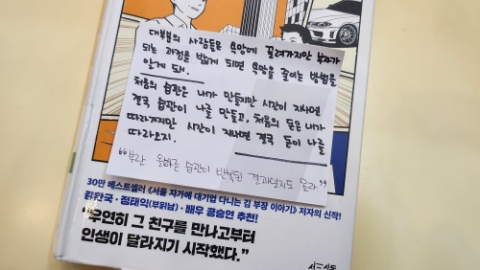 대부분의 사람들은 욕망에 끌려가지만 부자가
되는 과정을 밟게 되면 욕망을 줄이는 방법을
알게 돼.
처음의 습관은 내가 만들지만 시간이 지나면
결국 습관이 나를 만들고, 처음의 돈은 내가
따라가지만 시간이 지나면 결국 돈이 나를
따라오지.
"부란 올바른 습관이 반복된 결과일지도 몰라"
30만 베스트셀러 《서울 자가에 대기업 다니는 김 부장 이야기》 저자의 신작!
정태익(부읽남)·배우 공승연 추천!
"우연히 그 친구를 만나고부터
인생이 달라지기 시작했다."